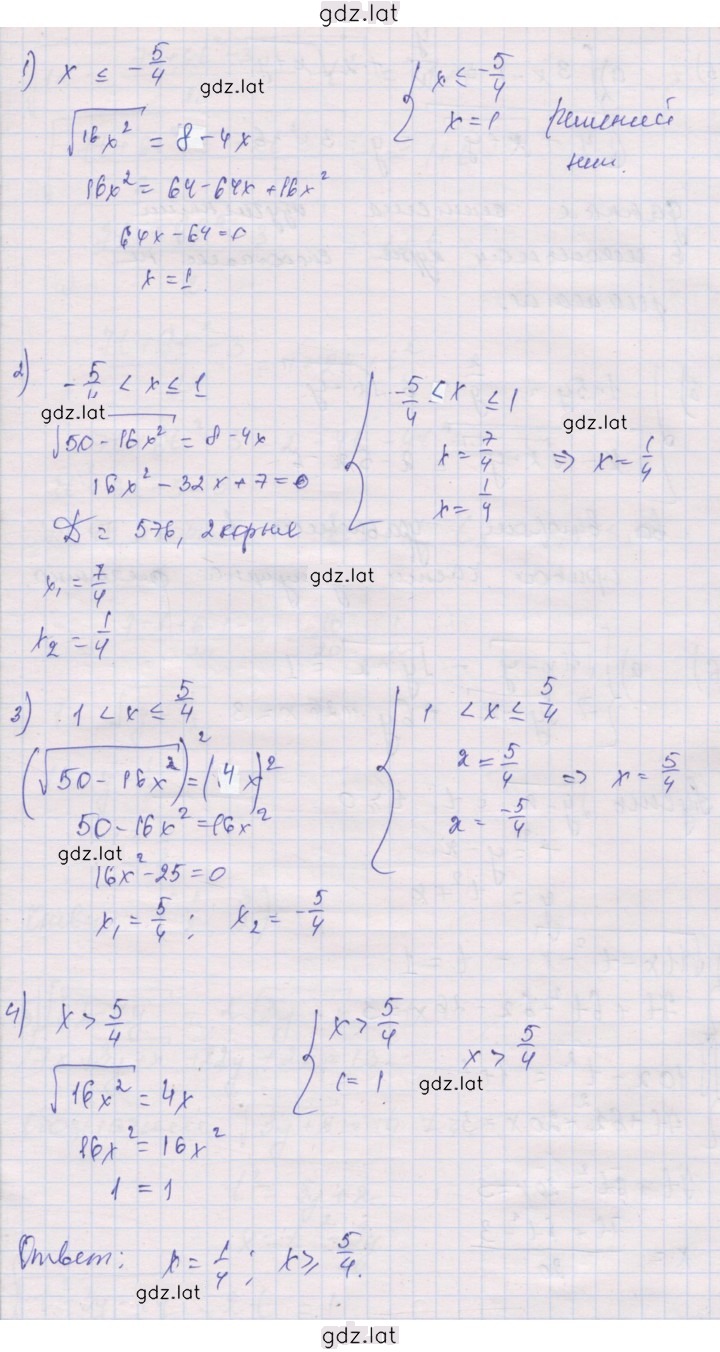 gdz.lat
1) x ≤ -5/4
gdz.lat
√16x² = 8 - 4x
16x² = 64 - 64x + 16x²
64x - 64 = 0
x = 1
{ x ≤ -5/4
x = 1 решений
нет.
2) -5/4 < x ≤ 1
gdz.lat
√50 - 16x² = 8 - 4x
16x² - 32x + 7 = 0
D = 576, 2 корня
x₁ = 7/4
x₂ = 1/4
{ -5/4 ≤ x ≤ 1
gdz.lat
x = 7/4 ⇒ x = 1/4
x = 1/4
gdz.lat
3) 1 < x ≤ 5/4
(√50 - 16x²)² = (4x)²
50 - 16x² = 16x²
gdz.lat
16x² - 25 = 0
x₁ = 5/4; x₂ = -5/4
{ 1 < x ≤ 5/4
x = 5/4 ⇒ x = 5/4
x = -5/4
4) x > 5/4
√16x² = 4x
16x² = 16x²
1 = 1
{ x > 5/4
1 = 1 x > 5/4
gdz.lat
Ответ: x = 1/4; x ≥ 5/4.
gdz.lat
gdz.lat